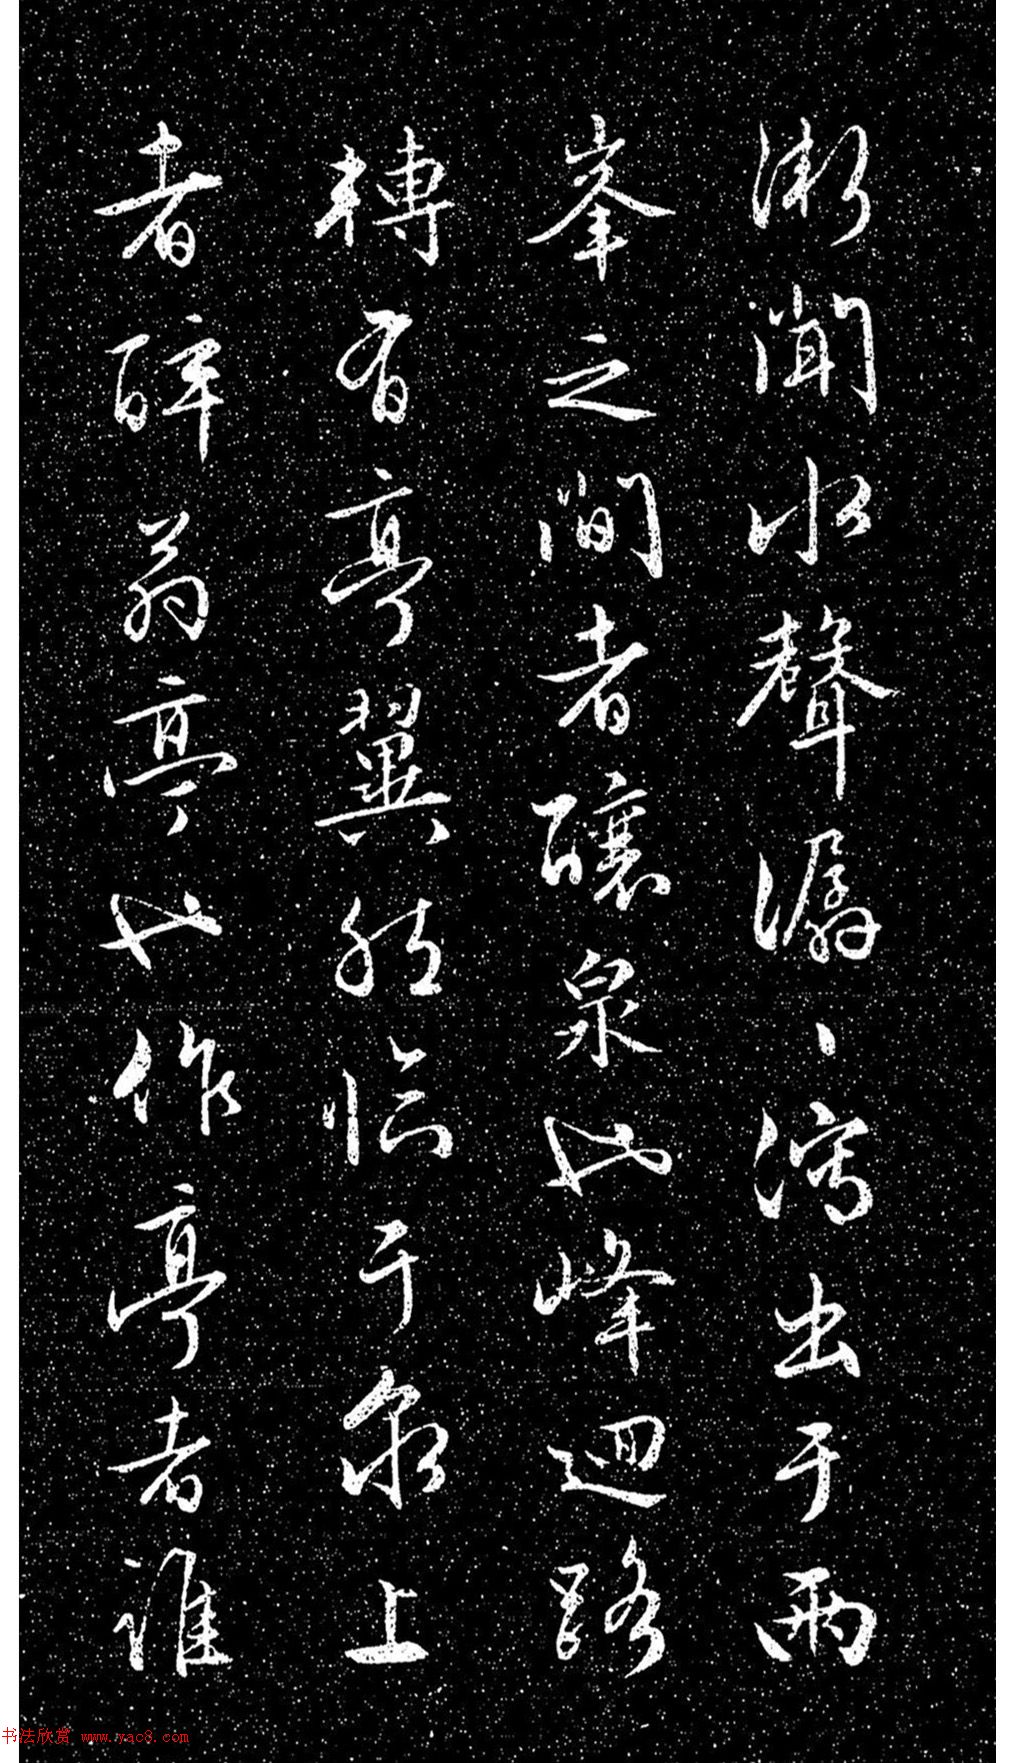 漸聞水聲潺丶瀉出于兩
峯之間者釀泉也峰迴路
轉有亭翼然臨于泉上
者醉翁亭也作亭者誰
书法欣赏 www.yac8.com